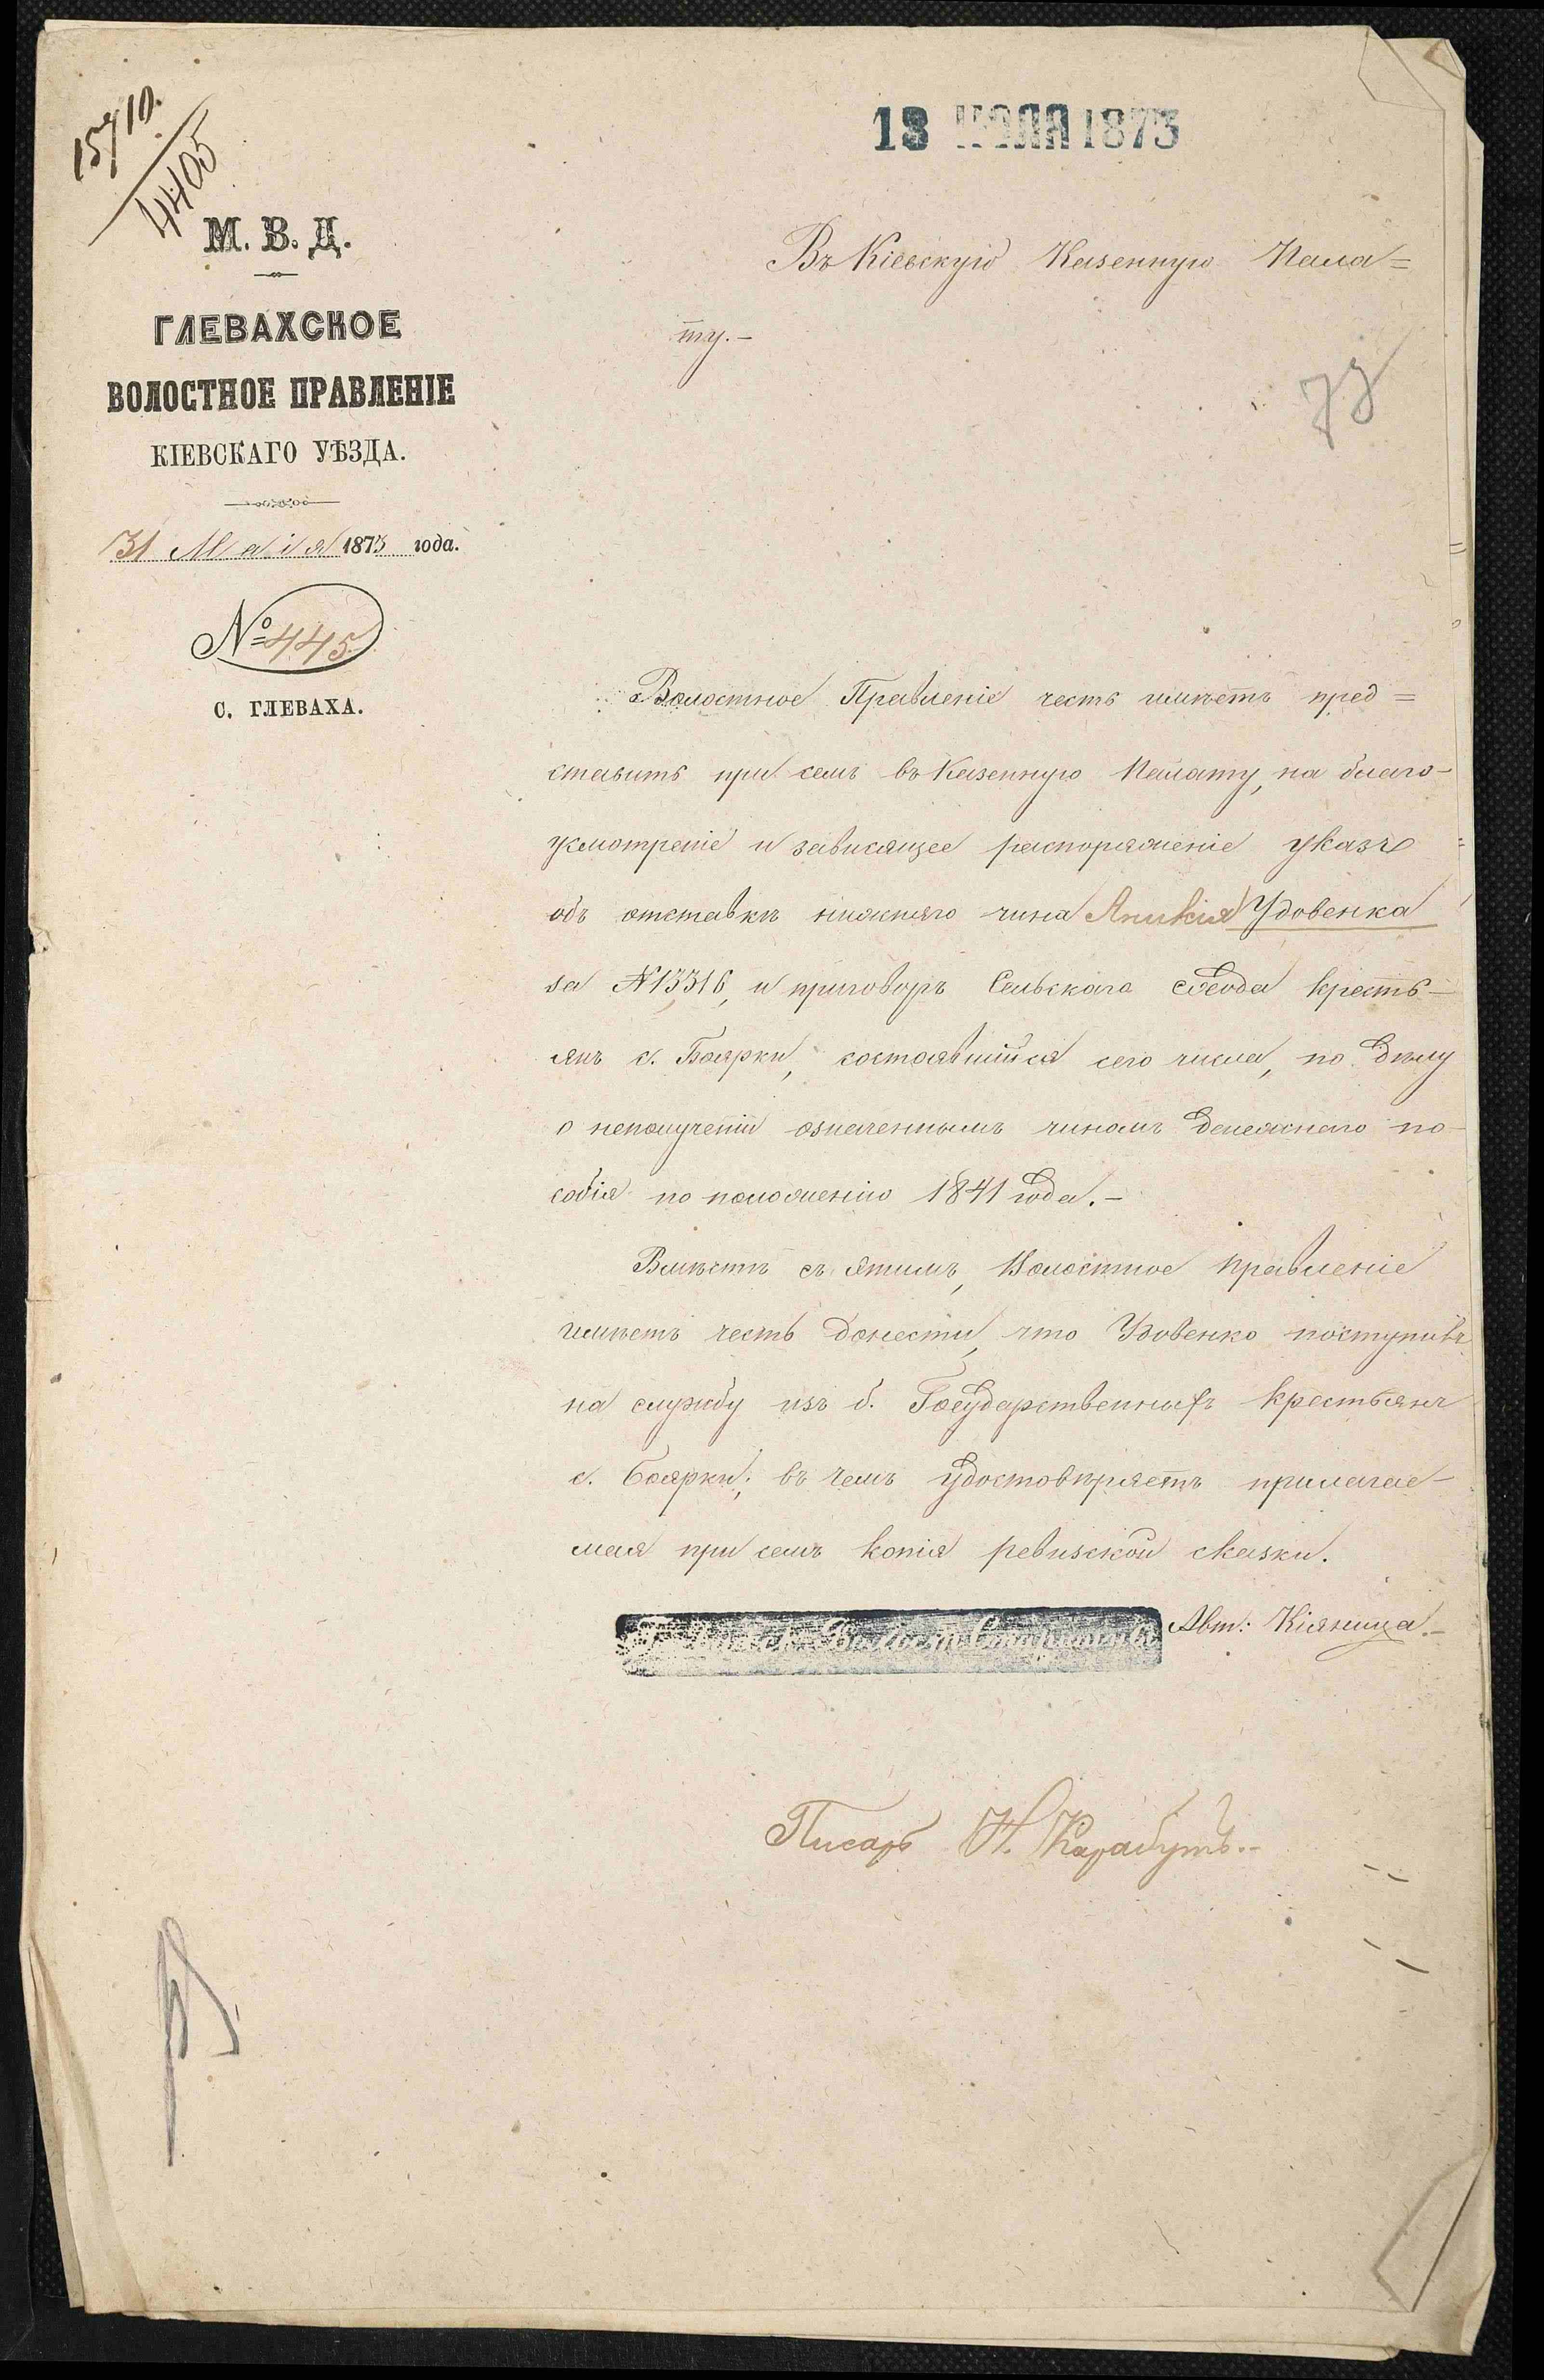 15710.
4405
18 ІЮНЯ 1873
М. В. Д.
ГЛЕВАХСКОЕ
ВОЛОСТНОЕ ПРАВЛЕНІЕ
КІЕВСКАГО УѢЗДА.
31 Маія 1873 года.
№ 445
С. ГЛЕВАХА.
Въ Кіевскую Казенную Пала=
ту.-
73
Волостное Правленіе честь имѣетъ пред=
ставить при семъ въ Казенную Палату, на благо-
усмотреніе и зависящее распоряженіе указъ
объ отставкѣ нижняго чина Аникія Удовенка
за №13316, и приговоръ Сельскаго схода кресть-
янъ с. Боярки, состоявшійся сего числа, по дѣлу
о неполученіи означеннымъ чиномъ денежнаго по-
собія по положенію 1841 года.-
Вмѣстѣ съ этимъ, Волостное правленіе
имѣетъ честь донести, что Удовенко поступивъ
на службу изъ б. Государственныхъ крестьянъ
с. Боярки; въ чемъ удостовѣряетъ прилагае-
мая при семъ копія ревизской сказки.
Волост. Старшина Авт: Кіяница.-
Писарь Н. Карабутъ.-